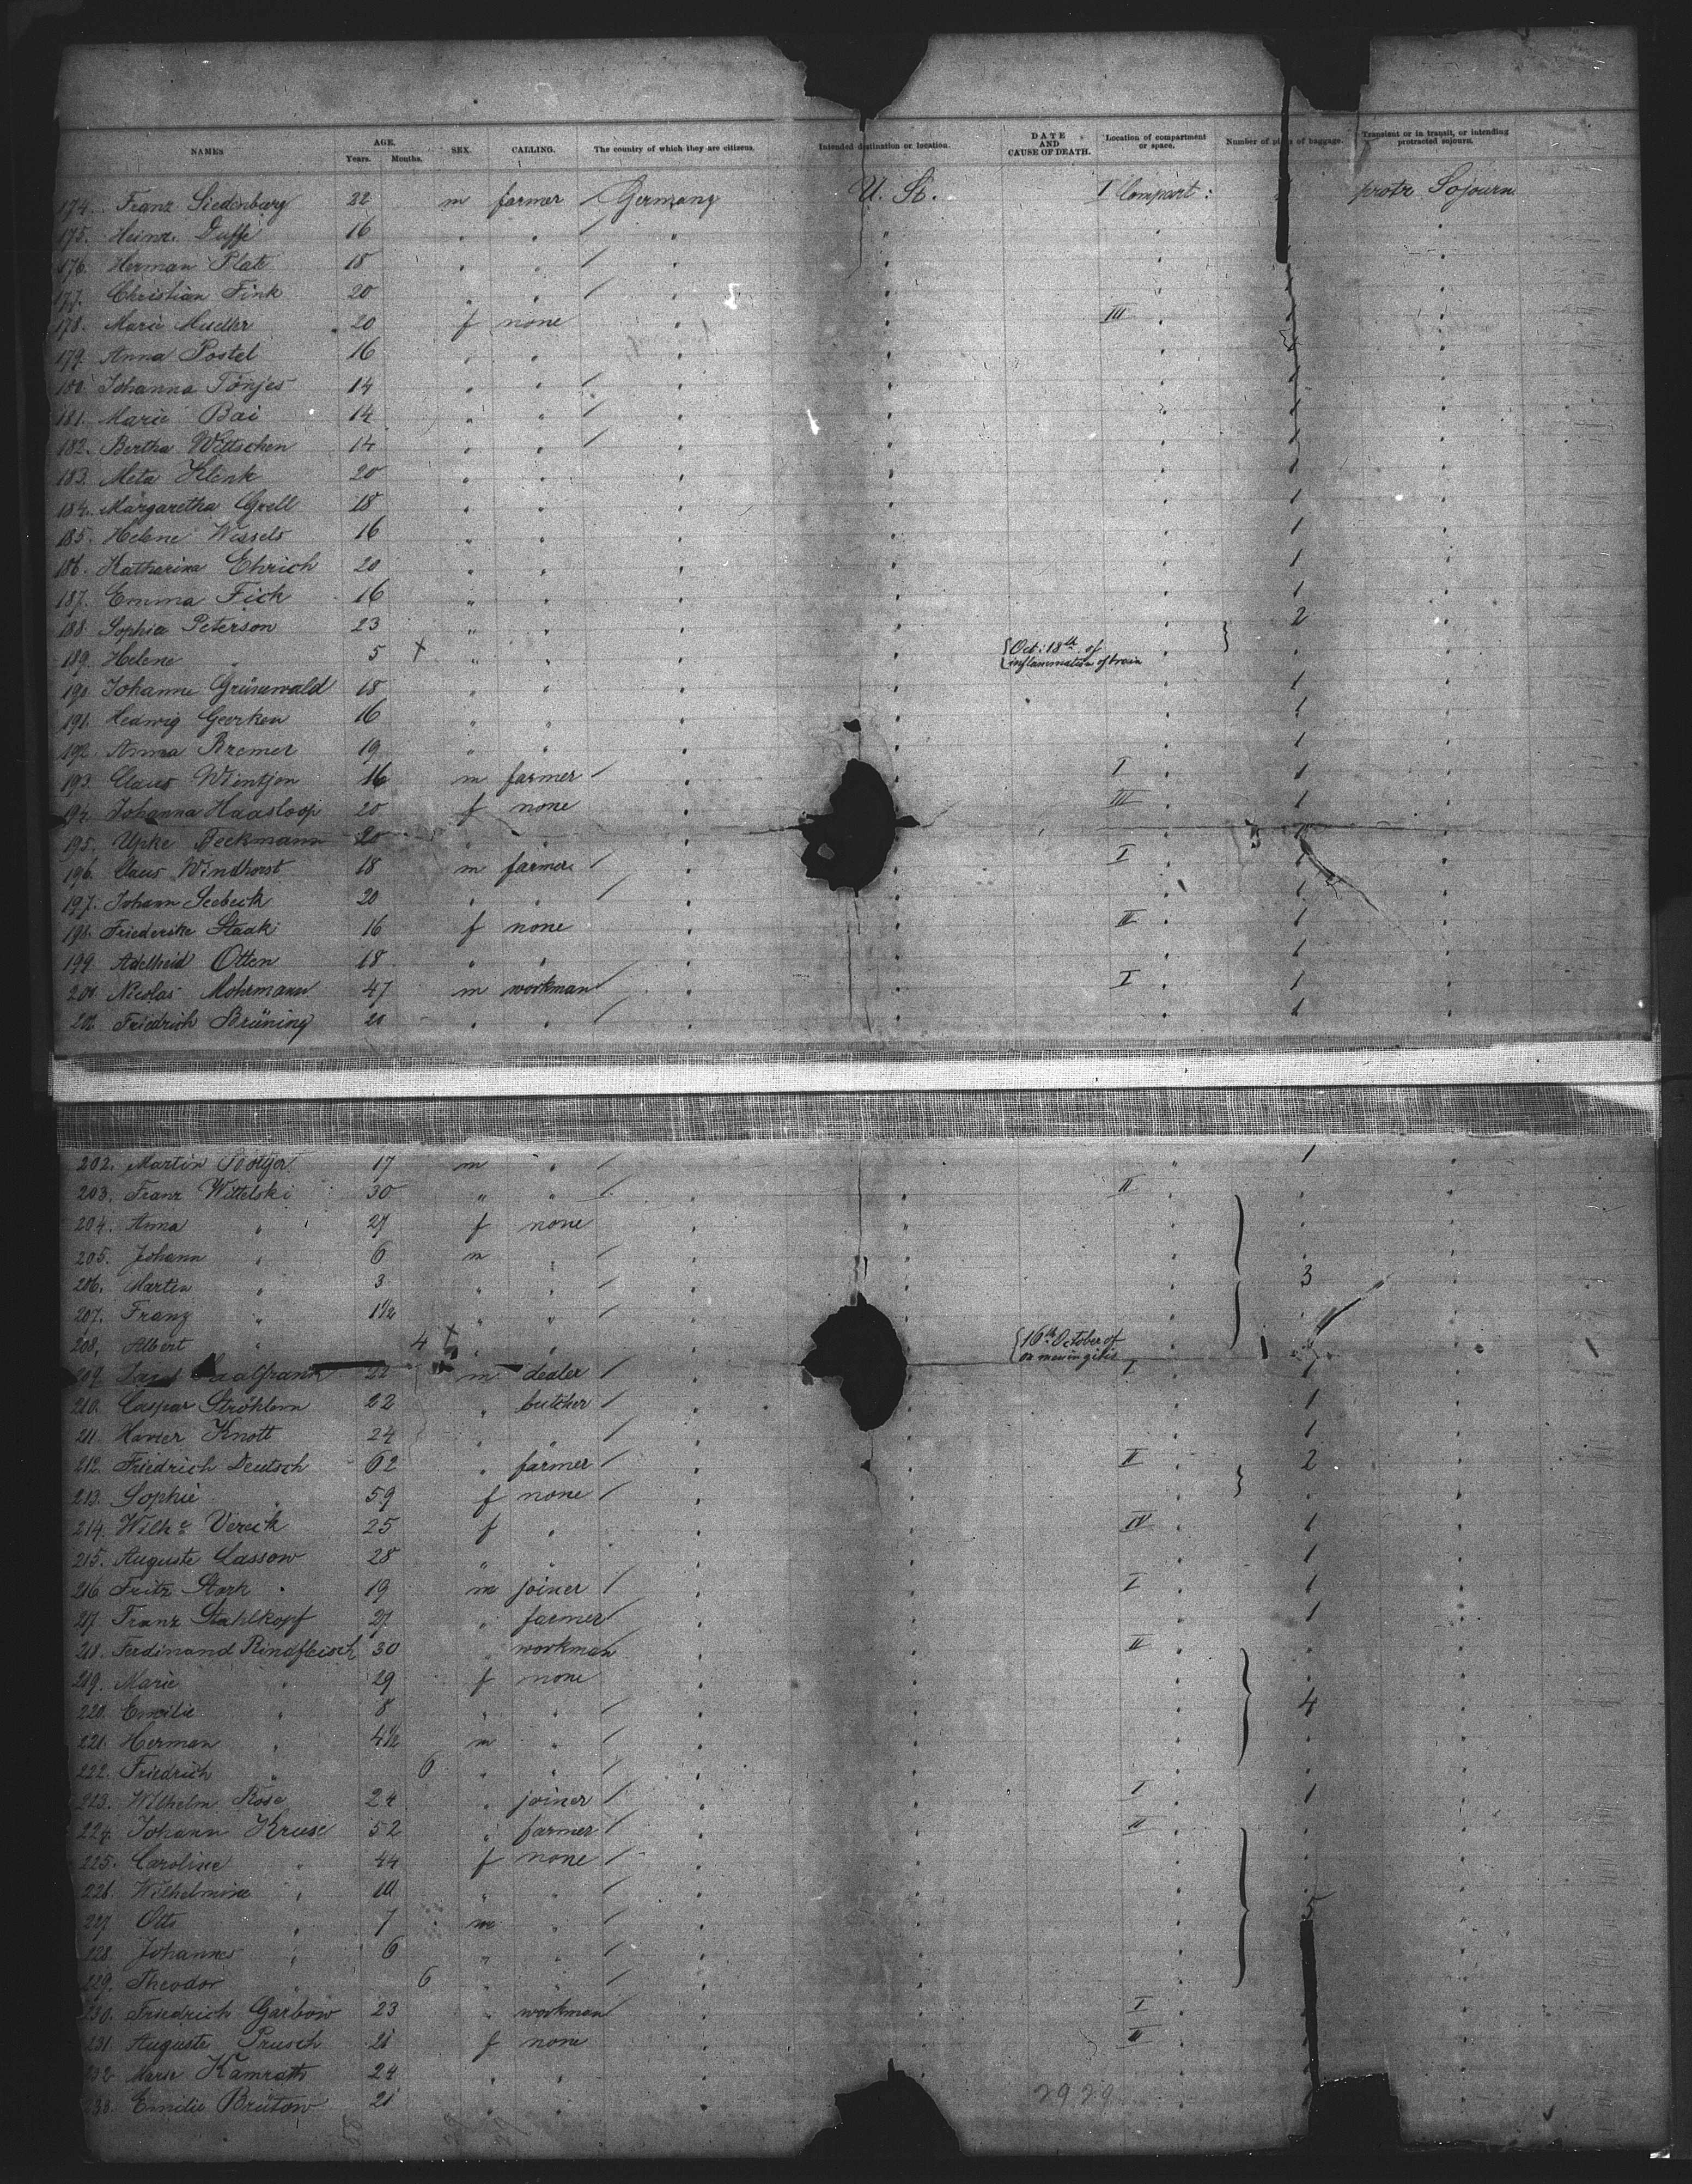 NAMES AGE. Years. Months. SEX. CALLING. The country of which they are citizens. Intended destination or location. DATE AND CAUSE OF DEATH. Location of compartment or space. Number of of baggage. Transient or in transit, or intending protracted sojourn.
174. Franz Siedenburg 22 m farmer / Germany U. St. I Compart: protr. Sojourn
175. Heinr. Duffe 16 " " / " " " "
176. Herman Plate 18 " " / " " " 1 "
177. Christian Fink 20 " " / " " " 1 "
178. Marie Mueller 20 f none " " III " 1 "
179. Anna Postel 16 " " " " " 1 "
180. Johanna Tönjes 14 " " / " " " 1 "
181. Marie Bai 14 " " / " " " 1 "
182. Bertha Wittschen 14 " " / " " " 1 "
183. Meta Klenk 20 " " " " " 1 "
184. Margaretha Grell 18 " " " " " 1 "
185. Helene Wessels 16 " " " " " 1 "
186. Katharina Ehrich 20 " " " " " 1 "
187. Emma Fick 16 " " " " " 1 "
188. Sophia Peterson 23 " " " " " 2 "
189. Helene " 5 + " " " " Oct: 18th of inflammation of brain " " "
190. Johanne Grünewald 18 " " " " " 1 "
191. Hedwig Geerken 16 " " " " " 1 "
192. Anna Bremer 19 " " " " " 1 "
193. Claus Wintjen 16 m farmer / " " I " 1 "
194. Johanna Haasloop 20 f none " III " 1 "
195. Upke Beckmann 20 " " " " 1 "
196. Claus Windhorst 18 m farmer / " I " 1 "
197. Johann Seebeck 20 " " / " " " 1 "
198. Friederike Staak 16 f none " " III " 1 "
199. Adelheid Otten 18 " " " " " 1 "
200. Nicolas Mohrmann 47 m workman / " " I " 1 "
201. Friedrich Brüning 20 " " / " " " 1 "
202. Martin Rottger 17 m " / " 1 "
203. Franz Wittelski 30 " " / " " II " " "
204. Anna " 27 f none " " " " "
205. Johann " 6 m " / " " " " "
206. Martin " 3 " " / " " " 3 "
207. Franz " 1½ " " / " " " "
208. Albert " 4 + " " " 16th October of meningitis " "
209. 22 m dealer / " I " 1 "
210. Caspar Ströhlem 22 " butcher / " " " 1 "
211. Xavier Knott 24 " " / " " " 1 "
212. Friedrich Deutsch 62 " farmer / " " II " 2 "
213. Sophie " 59 f none / " " " " "
214. Wilh e Vereik 25 f " " " IV " 1 "
215. Auguste Cassow 28 " " " " " 1 "
216. Fritz Stark 19 m joiner / " " I " 1 "
217. Franz Stahlkopf 27 " farmer / " " " 1 "
218. Ferdinand Rindfleisch 30 " workman " " II " " "
219. Marie " 29 f none " " " " "
220. Emilie " 8 " " / " " " 4 "
221. Herman " 4½ m " / " " " " "
222. Friedrich " 6 " " / " " " " "
223. Wilhelm Rose 24 " joiner / " " I " 1 "
224. Johann Kruse 52 " farmer / " " II " " "
225. Caroline " 44 f none / " " " " "
226. Wilhelmine " 10 " " / " " " " "
227. Otto " 7 m " / " " " 5 "
228. Johannes " 6 " " / " " " "
229. Theodor " 6 " " / " " " "
230. Friedrich Garbow 23 " workman / " " I " "
231. Auguste Prusch 21 f none " " II " "
232. Marie Kamrath 24 " " " " " "
233. Emilie Brütow 21 " " " " "
2929